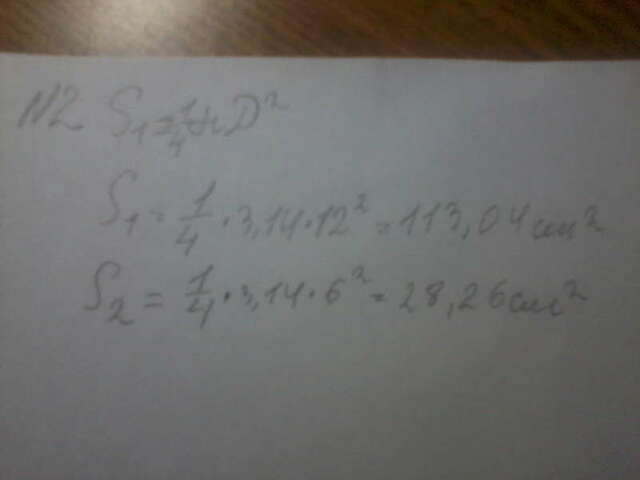 N2 S₁ = 1/4 π D²
S₁ = 1/4 · 3,14 · 12² = 113,04 см²
S₂ = 1/4 · 3,14 · 6² = 28,26 см²